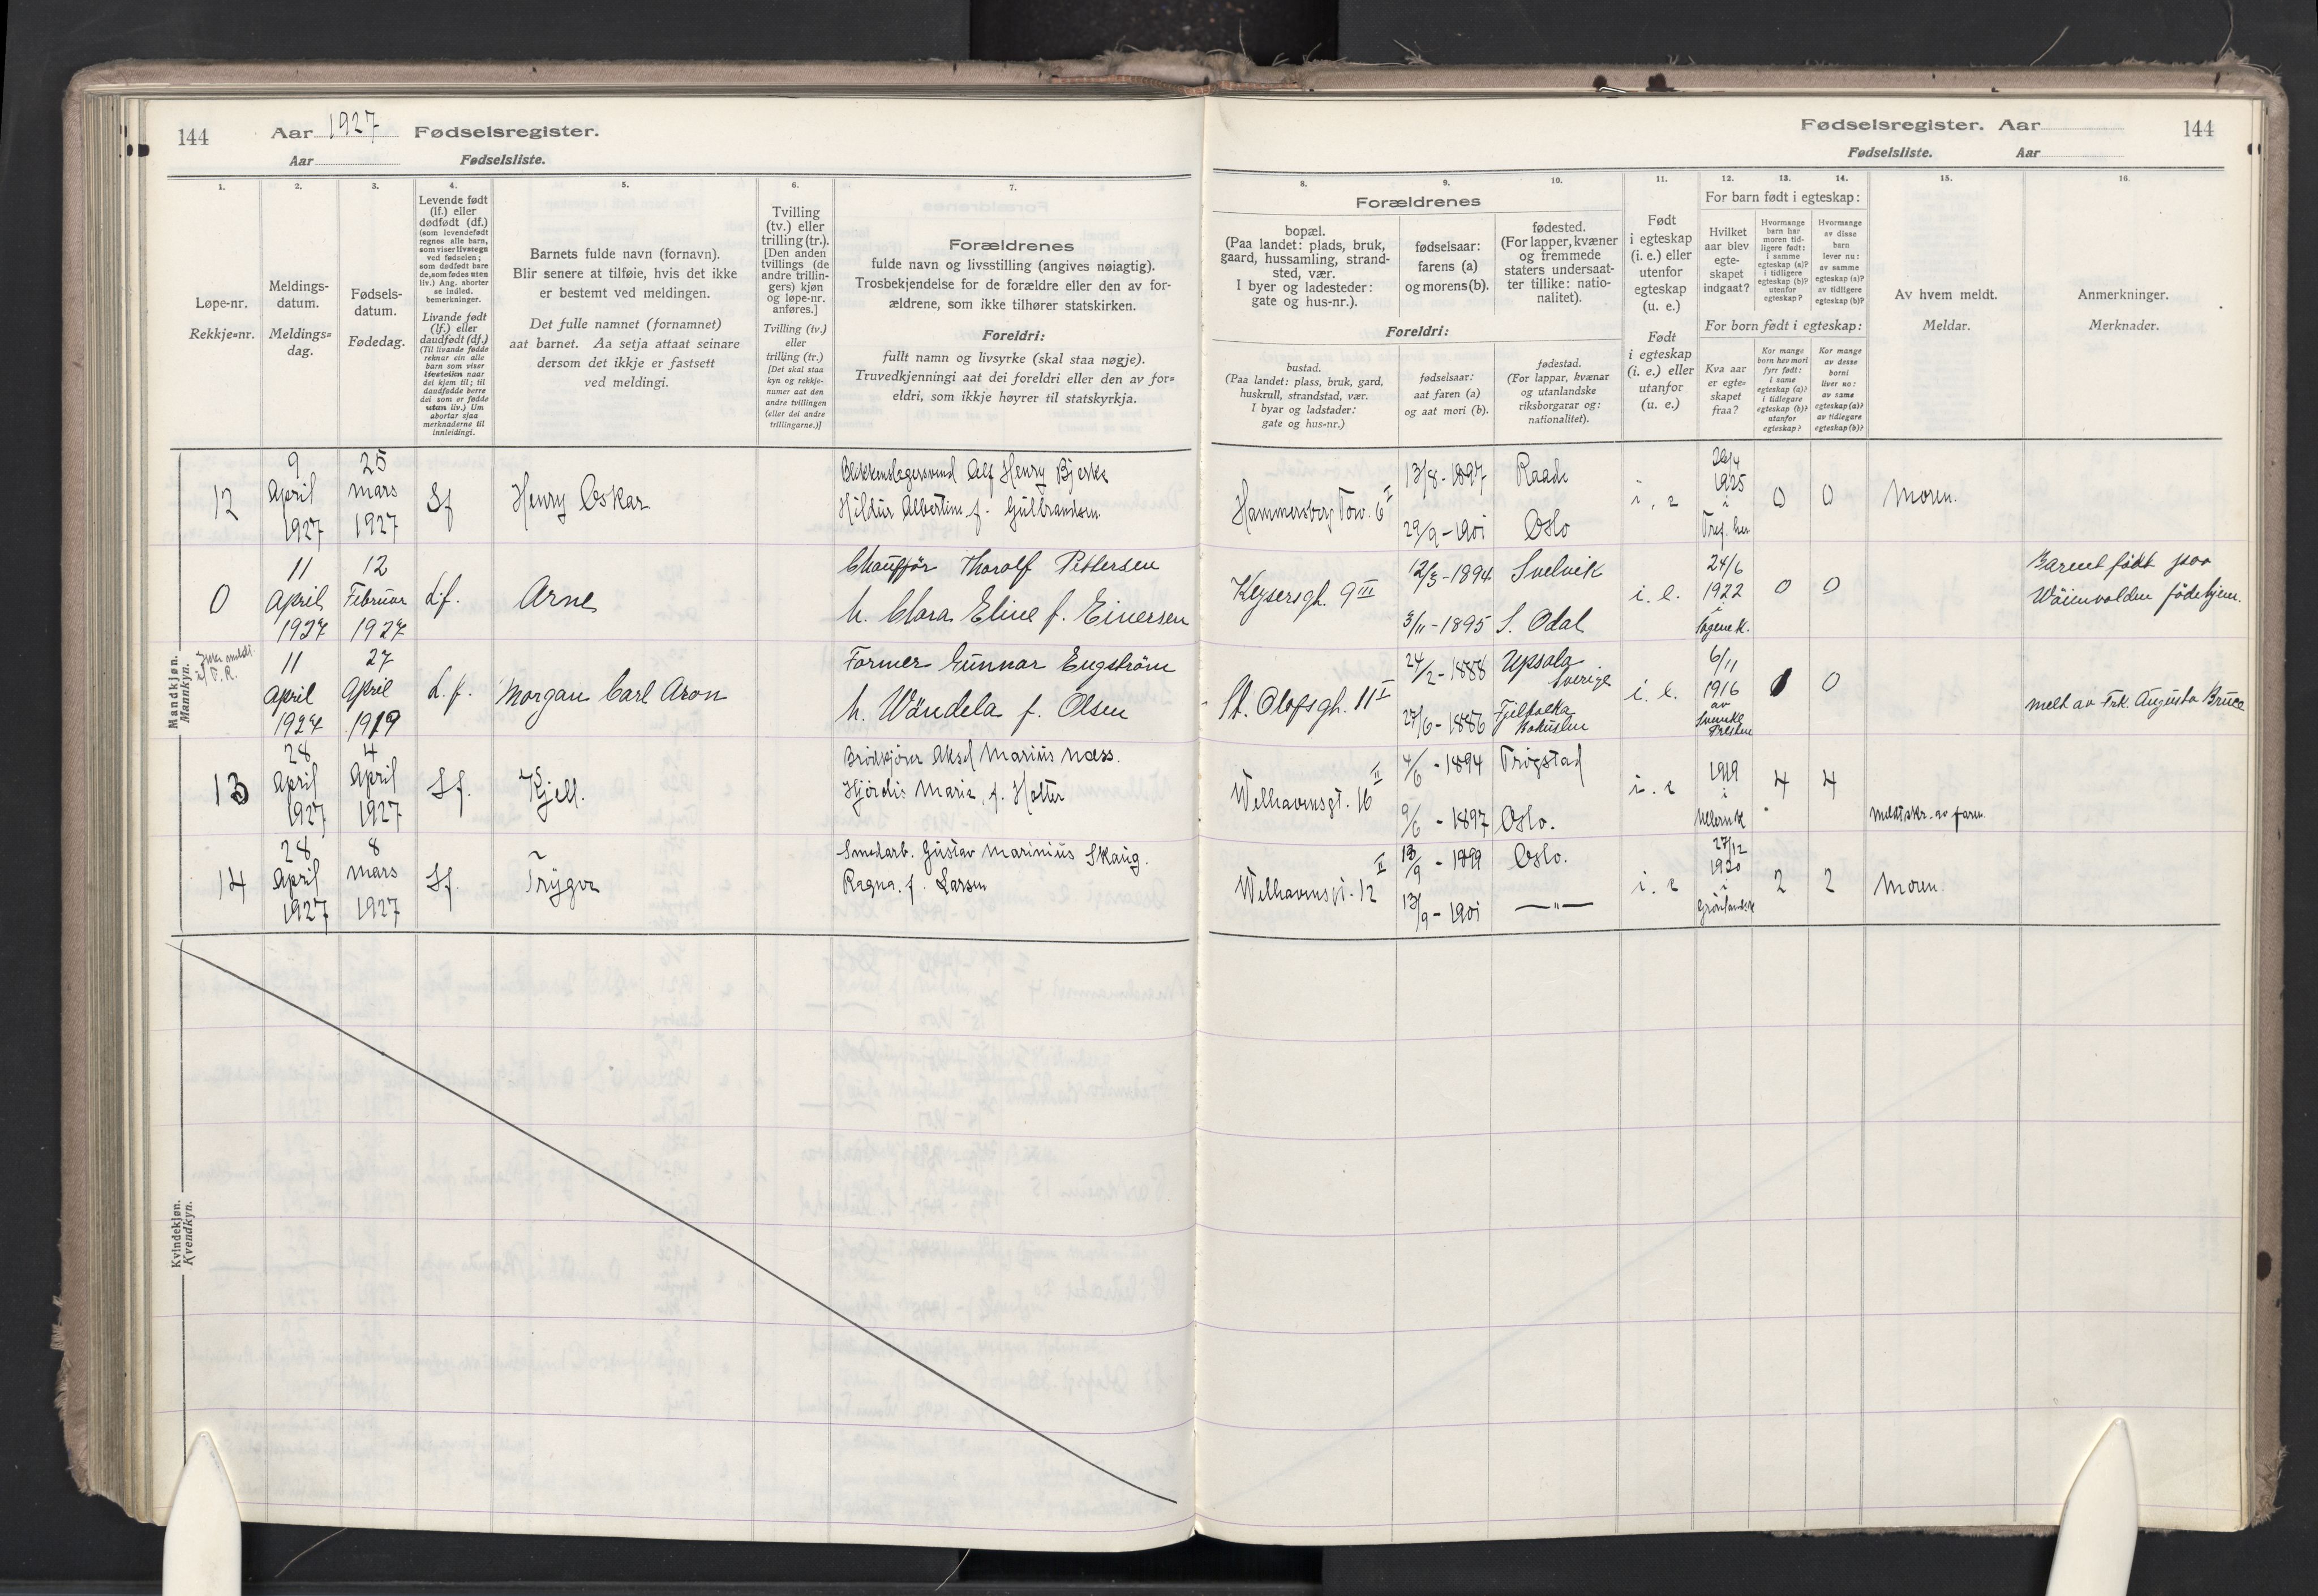 144 Aar 1927 Fødselsregister.
Aar Fødselsliste.
1. 2. 3. 4. 5. 6. 7.
Løpe-nr.
Rekkje=nr.
Meldings-
datum.
Meldings=
dag.
Fødsels-
datum.
Fødedag.
Levende født
(lf.) eller
dødfødt (df.)
(som levendefødt
regnes alle barn,
som viser livstegn
ved fødselen;
som dødfødt bare
de, som fødes uten
liv.) Ang. aborter
se indled.
bemerkninger.
Livande født
(lf.) eller
daudfødt (df.)
(Til livande fødde
reknar ein alle
barn som viser
livsteikn naar
dei kjem til; til
daudfødde berre
dei som er fødde
utan liv.) Um
abortar sjaa
merknaderne til
innleidingi.
Barnets fulde navn (fornavn).
Blir senere at tilføie, hvis det ikke
er bestemt ved meldingen.
Det fulle namnet (fornamnet)
aat barnet. Aa setja attaat seinare
dersom det ikkje er fastsett
ved meldingi.
Tvilling
(tv.) eller
trilling (tr.).
[Den anden
tvillings (de
andre trillin-
gers) kjøn
og løpe-nr.
anføres.]
Tvilling (tv.)
eller
trilling (tr.)
[Det skal staa
kyn og rekkje-
numer aat den
andre tvillingen
(eller dei andre
trillingarne.)]
Forældrenes
fulde navn og livsstilling (angives nøiagtig).
Trosbekjendelse for de forældre eller den av for-
ældrene, som ikke tilhører statskirken.
Foreldri:
fullt namn og livsyrke (skal staa nøgje).
Truvedkjenningi aat dei foreldri eller den av for=
eldri, som ikkje høyrer til statskyrkja.
Mandkjøn.
Mankyn.
12
9
April
1927
25
mars
1927
Lf
Henry Oskar
Blikkenslagersvend Alf Henry Bjerke
Hildur Albertine f. Gulbrandsen
0
11
April
1927
12
Februar
1927
L.f.
Arne
Chauffør Thoralf Pettersen
h. Clara Eline f. Einersen
11
April
1927
27
April
1919
L.f.
Morgan Carl Aron
Former Gunnar Engström
h. Wändela f. Olsen
13
28
April
1927
4
April
1927
Lf.
Kjell.
Brødkjører Aksel Marius Næss.
Hjördis Marie, f. Holter
14
28
April
1927
8
mars
1927
Lf
Trygve
Smedarb. Gustav Marinius Skaug.
Ragna. f. Larsen
Kvindekjøn.
Kvendkyn.
Fødselsregister. Aar 144
Fødselsliste. Aar
8. 9. 10. 11. 12. 13. 14. 15. 16.
Forældrenes
bopæl.
(Paa landet: plads, bruk,
gaard, hussamling, strand-
sted, vær.
I byer og ladesteder:
gate og hus-nr.).
fødselsaar:
farens (a)
og morens (b).
fødested.
(For lapper, kvæner
og fremmede
staters undersaat-
ter tillike: natio-
nalitet).
Foreldri:
bustad.
(Paa landet: plass, bruk, gard,
huskrull, strandstad, vær.
I byar og ladstader:
gate og hus=nr.)
fødselsaar:
aat faren (a)
og aat mori (b).
fødestad.
(For lappar, kvænar
og utanlandske
riksborgarar og:
nationalitet).
Født
i egteskap
(i. e.) eller
utenfor
egteskap
(u. e.)
Født
i egteskap
(i. e.) eller
utanfor
(u. e.)
For barn født i egteskap:
Hvilket
aar blev
egte-
skapet
indgaat?
Hvormange
barn har
moren tid-
ligere født:
i samme
egteskap (a)?
i tidligere
egteskap (b)?
utenfor
egteskap?
Hvormange
av disse
barn
lever nu:
av samme
egteskap (a)?
av tidligere
egteskap (b)?
For born født i egteskap:
Kva aar
er egte=
skapet
fraa?
Kor mange
born hev mori
fyrr født:
i same
egteskap (a)?
i tidlegare
egteskap (b)?
utanfor
egteskap?
Kor mange
av desse
borni
liver no:
av same
egteskap (a)?
av tidlegare
egteskap (b)?
Av hvem meldt.
Meldar.
Anmerkninger.
Merknader.
Hammersborg Torv. 6 II
13/8-1897
29/9-1901
Raade
Oslo
i, e
1925
i
0
0
Moren.
Keysersgt. 9 III
12/3-1894
3/11-1895
Svelvik
S. Odal
i. e.
24/6
1922
i
Sagene K.
0
0
Barnet født paa
Wöienvolden fødehjem.
St. Olofsgt. 11 I
24/2-1888
27/6-1886
Upsala
Sverige
i. e.
6/11
1916
av
Svenske
Presten
1
0
melt av Frk. Augusta Bruce
Welhavensgt. 16 II
4/6 - 1894
9/6 - 1897
Trøgstad
Oslo.
i. e
1919
i
Ullern K
4
4
meldt skr. av faren.
Welhavensgt. 12 II
13/9 - 1899
13/9 - 1901
Oslo.
— " —
i. e
27/12
1920
i
Grønlandsk
2
2
Moren.